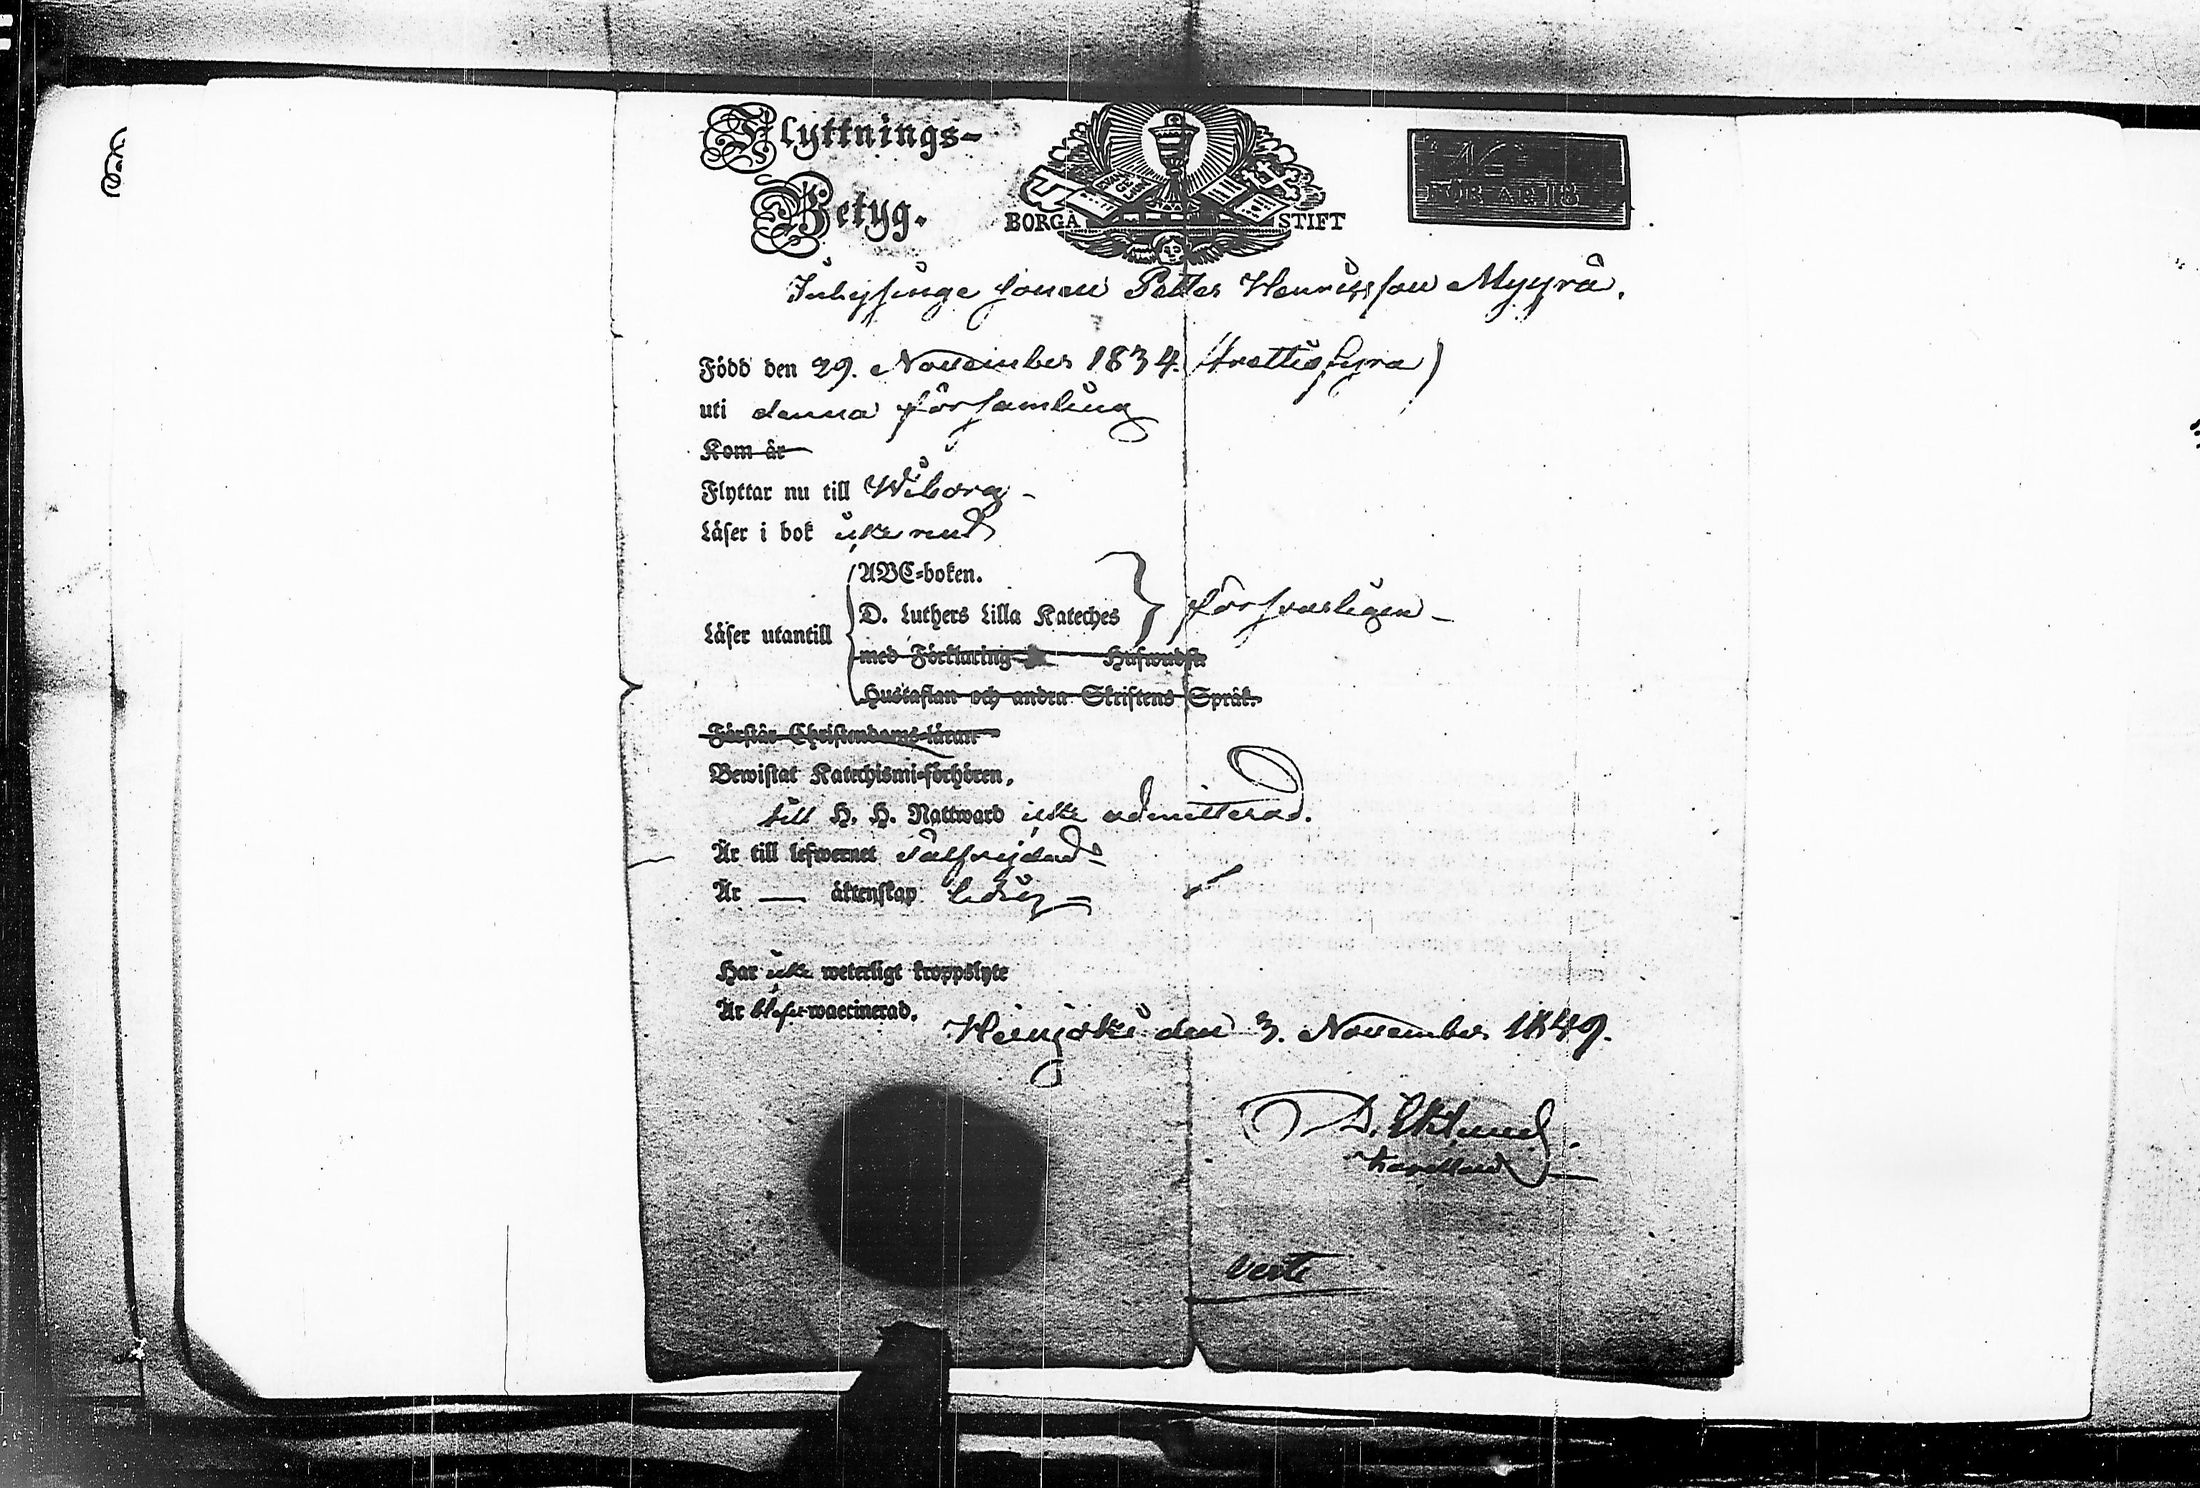 Flyttnings-
Betyg.
BORGÅ STIFT
FÖR ÅR 18
Inhysinge sonen Petter Henricsson Myyrä.
Född den 29. November 1834. (trettiofyra)
uti denna församling
Kom år
Flyttar nu till Wiborg -
Läser i bok icke rent
ABC-boken.
Läser utantill D. Luthers Lilla Kateches } försvarligen -
med Förklaring
Hustaflan och andra Skriftens Språk.
Förstår Christendoms-läran
Bewistat Katechismi-förhören,
till H. H. Nattward icke admitterad.
Är till lefwernet välfrejdad -
Är — äktenskap ledig -
Har icke weterligt kroppslyte
Är waccinerad.
Heinjoki den 3. November 1849.
D. Eklund.
Kapellan
verte